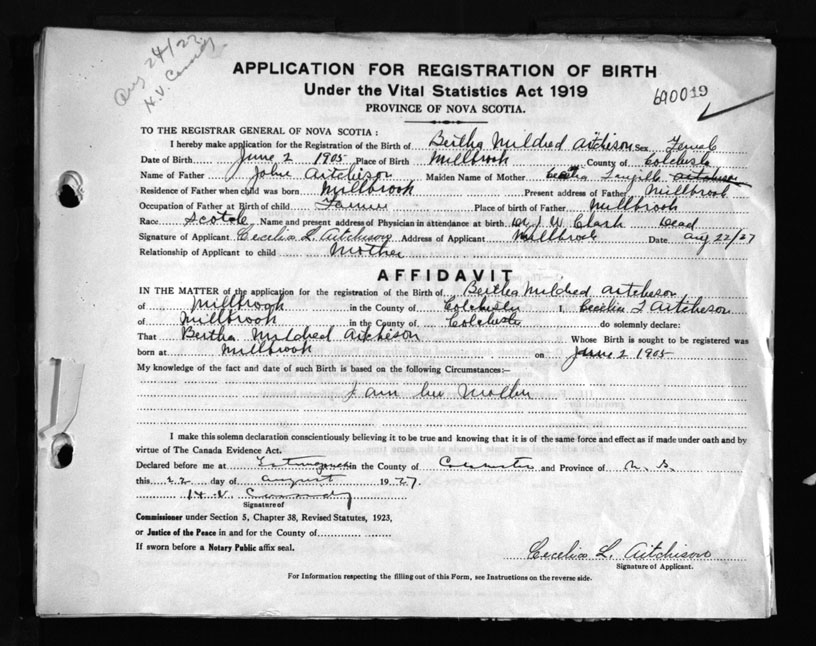 Aug 24/27
H.V. Cassidy
APPLICATION FOR REGISTRATION OF BIRTH
Under the Vital Statistics Act 1919
690019
PROVINCE OF NOVA SCOTIA.
TO THE REGISTRAR GENERAL OF NOVA SCOTIA:
I hereby make application for the Registration of the Birth of Bertha Mildred Aitcheson Sex Female
Date of Birth June 2 1905 Place of Birth Millbrook County of Colchester
Name of Father John Aitchison Maiden Name of Mother Langille Aitchison
Residence of Father when child was born Millbrook Present address of Father Millbrook
Occupation of Father at Birth of child Farmer Place of birth of Father Millbrook
Race Scotch Name and present address of Physician in attendance at birth Dr Clark Dead
Signature of Applicant Cecelia L. Aitchison Address of Applicant Millbrook Date Aug 22/27
Relationship of Applicant to child Mother
AFFIDAVIT
IN THE MATTER of the application for the registration of the Birth of Bertha Mildred Aitcheson
of Millbrook in the County of Colchester I, Cecelia L Aitcheson
of Millbrook in the County of Colchester do solemnly declare:
That Bertha Mildred Aitcheson Whose Birth is sought to be registered was
born at Millbrook on June 2 1905
My knowledge of the fact and date of such Birth is based on the following Circumstances:—
I am her Mother
I make this solemn declaration conscientiously believing it to be true and knowing that it is of the same force and effect as if made under oath and by
virtue of The Canada Evidence Act.
Declared before me at Tatamagouche in the County of Colchester and Province of N.S.
this 22 day of August 1927.
H.V. Cassidy
Signature of
Commissioner under Section 5, Chapter 38, Revised Statutes, 1923,
or Justice of the Peace in and for the County of
If sworn before a Notary Public affix seal.
Cecelia L. Aitchison
Signature of Applicant.
For Information respecting the filling out of this Form, see Instructions on the reverse side.